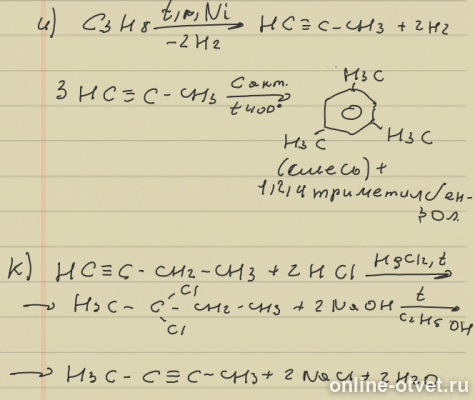 и) C3H8 t,p,Ni → HC≡C-CH3 + 2H2
-2H2
3 HC≡C-CH3 Cакт. →
t400°
H3C
H3C H3C
(смесь) +
1,2,4 триметилбен-
зол.
к) HC≡C-CH2-CH3 + 2HCl HgCl2, t →
Cl
→ H3C-C-CH2-CH3 + 2NaOH t →
Cl C2H5OH
→ H3C-C≡C-CH3 + 2NaCl + 2H2O
online-otvet.ru